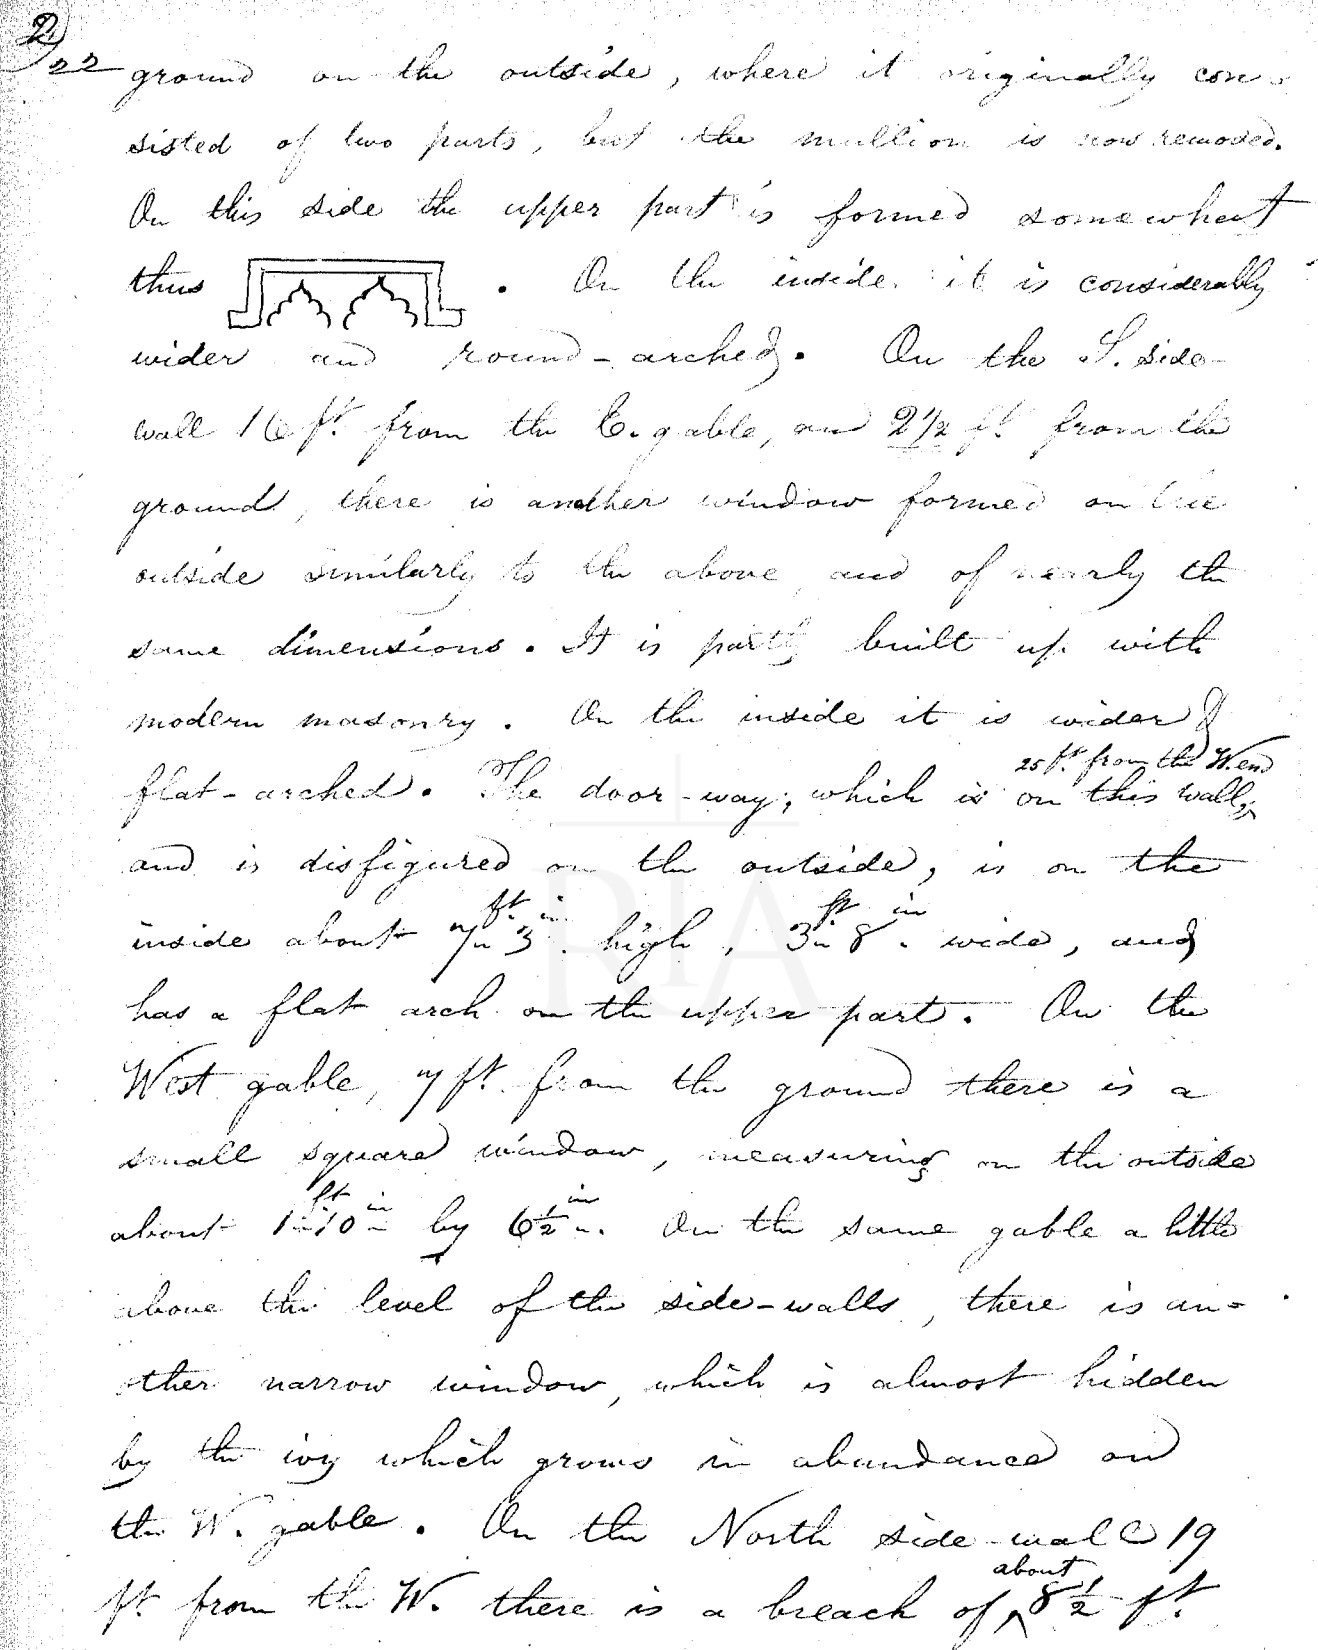 2
22
ground on the outside, where it originally con-
sisted of two parts, but the mullion is now removed.
On this side the upper part is formed somewhat
thus . On the inside it is considerably
wider and round-arched. On the S. side
wall 16 ft. from the E. gable, and 2 1/2 ft. from the
ground, there is another window formed on the
outside similarly to the above and of nearly the
same dimensions. It is partly built up with
modern masonry. On the inside it is wider &
25 ft. from the W. end
flat-arched. The door-way, which is on this wall,
and is disfigured on the outside, is on the
ft. in. ft in
inside about 7 " 3 " high, 3 " 8 " wide, and
has a flat arch on the upper part. On the
West gable, 7 ft. from the ground there is a
small square window, measuring on the outside
ft in in
about 1 " 10 " by 6 1/2 ". On the same gable a little
above the level of the side-walls, there is an-
other narrow window, which is almost hidden
by the ivy which grows in abundance on
the W. gable. On the North side-wall 19
about
ft. from the W. there is a breach of 8 1/2 ft.
RIA